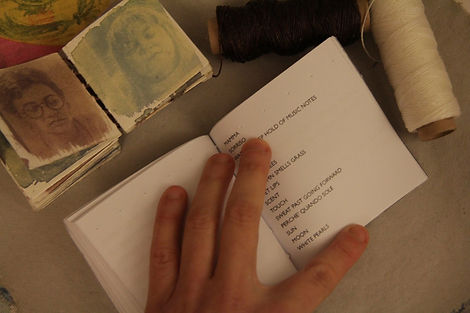 MAMMA
SORRISO
HOLD OF MUSIC NOTES
SMELLS GRASS
LIPS
SCENT
TOUCH
SWEAT PAST GOING FORWARD
PERCHE' QUANDO SOLE
SUN
MOON
WHITE PEARLS